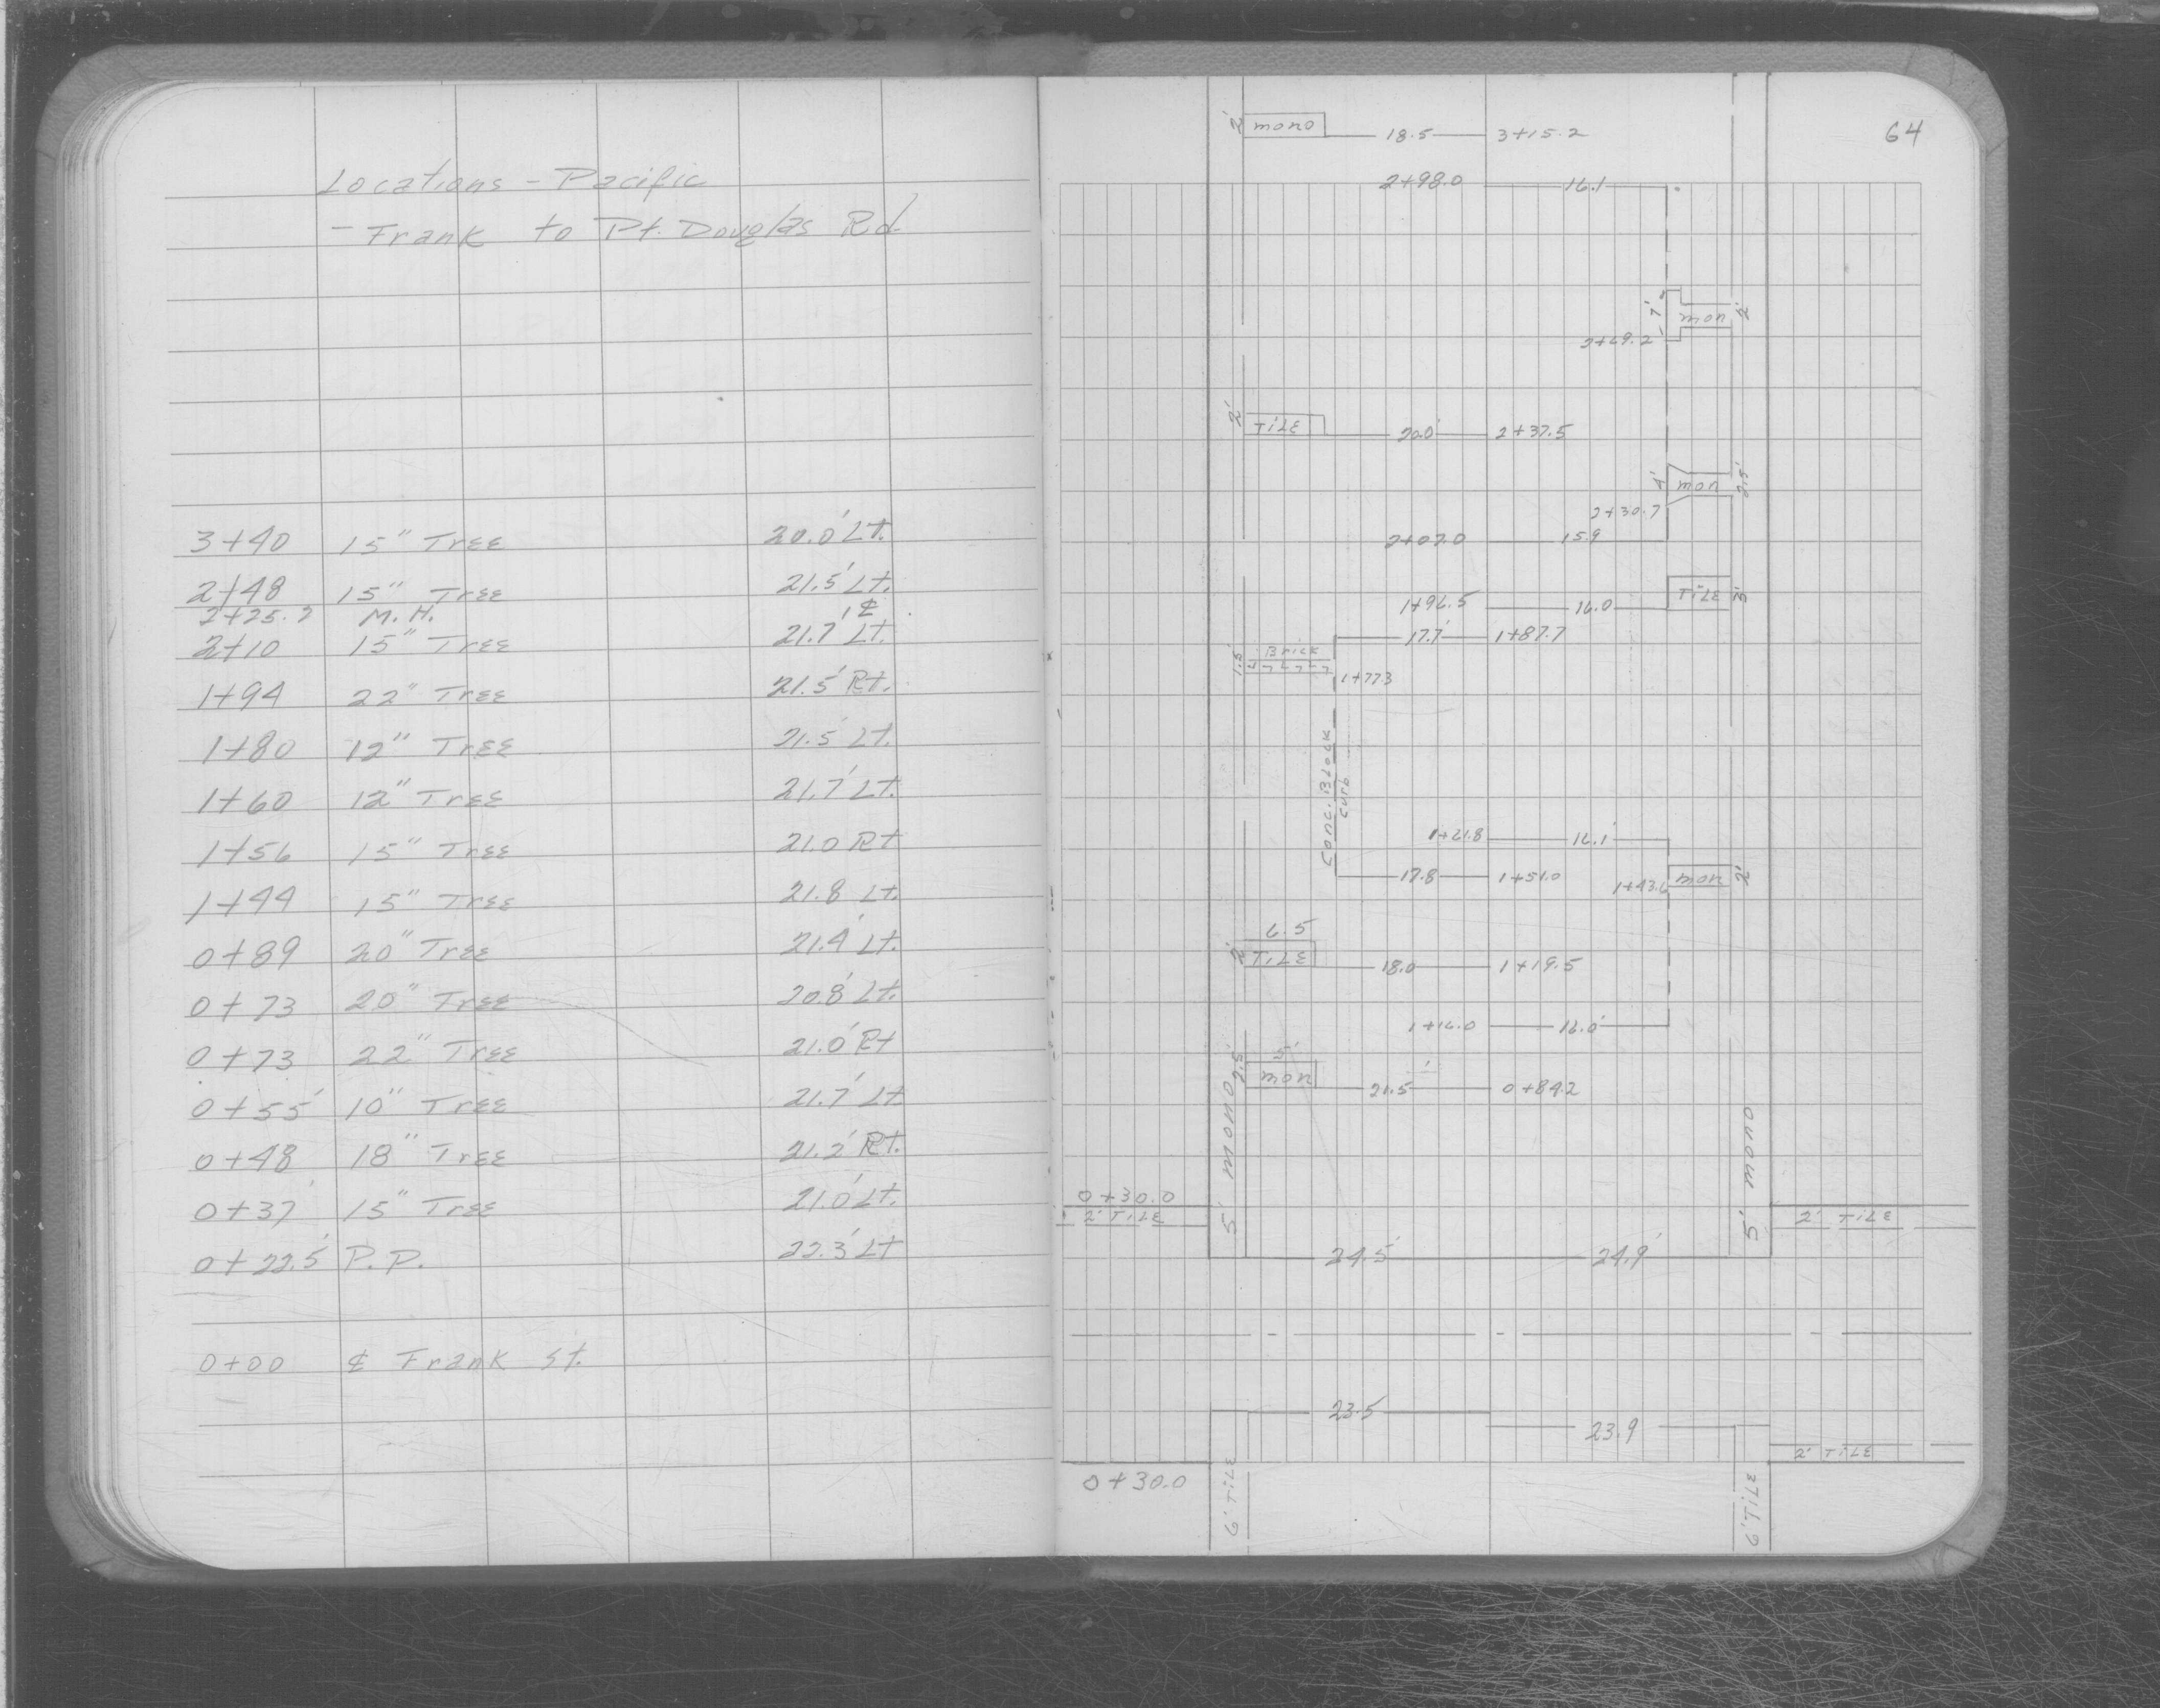 Locations - Pacific
- Frank to Pt. Douglas Rd.
3+40 15" Tree 20.0' Lt.
2+48 15" Tree 21.5' Lt.
2+25.2 M.H. ℄
2+10 15" Tree 21.7' Lt.
1+94 22" Tree 21.5' Rt.
1+80 12" Tree 21.5' Lt.
1+60 12" Tree 21.7' Lt.
1+56 15" Tree 21.0 Rt
1+44 15" Tree 21.8 Lt.
0+89 20" Tree 21.4' Lt.
0+73 20" Tree 20.8' Lt.
0+73 22" Tree 21.0' Rt
0+55 10" Tree 21.7' Lt
0+48 18" Tree 21.2' Rt.
0+37 15" Tree 21.0' Lt.
0+22.5 P.P. 22.3' Lt
0+00 ℄ Frank St.
64
2' mono 18.5 3+15.2
2+98.0 16.1
7' mon 2'
2+69.2
2' TILE 20.0' 2+37.5
4' mon 2.5'
2+30.7
2+07.0 15.9
TILE 3'
1+96.5 16.0
17.7' 1+87.7
1.5' Brick
1+77.3
Conc. Block
Curb
1+61.8 16.1'
17.8 1+51.0
1+43.6 mon 2'
6.5
2' TILE 18.0 1+19.5
1+16.0 16.0'
5'
2.5' mon 21.5 0+84.2
5' mono
5' mono
0+30.0
2' TILE
2' TILE
24.5' 24.9'
23.5
23.9
2' TILE
0+30.0
6' TILE
6' TILE